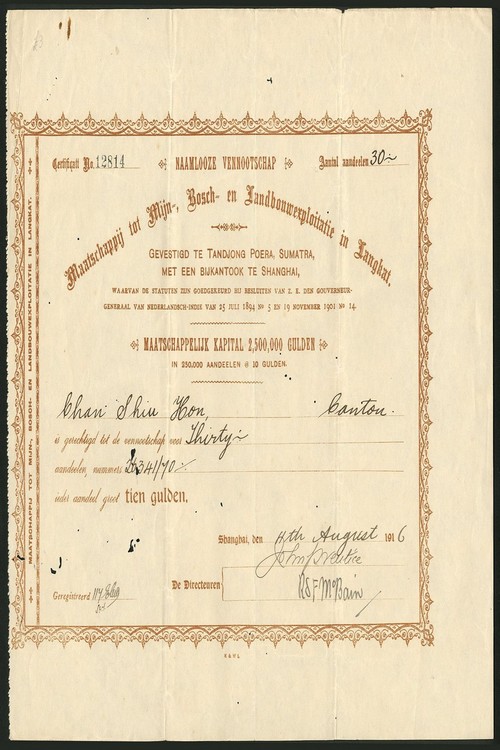 Certificaat No. 12814
NAAMLOOZE VENNOOTSCHAP
Aantal aandeelen 30
Maatschappij tot Mijn-, Bosch- en Landbouwexploitatie in Langkat.
GEVESTIGD TE TANDJONG POERA, SUMATRA,
MET EEN BIJKANTOOK TE SHANGHAI,
WAARVAN DE STATUTEN ZIJN GOEDGEKEURD BIJ BESLUITEN VAN Z. E. DEN GOUVERNEUR-
GENERAAL VAN NEDERLANDSCH-INDIE VAN 25 JULI 1894 No 5 EN 19 NOVEMBER 1901 No 14.
MAATSCHAPPELIJK KAPITAL 2,500,000 GULDEN
IN 250,000 AANDEELEN @ 10 GULDEN.
Chan Shiu Hon, Canton.
is gerechtigd tot de vennootschap voor Thirty
aandeelen, nummers 341/70
ieder aandeel groot tien gulden.
Shanghai, den 11th August 1916
De Directeuren
R S F McBain
Geregistreerd
MAATSCHAPPIJ TOT MIJN-, BOSCH- EN LANDBOUWEXPLOITATIE IN LANGKAT.